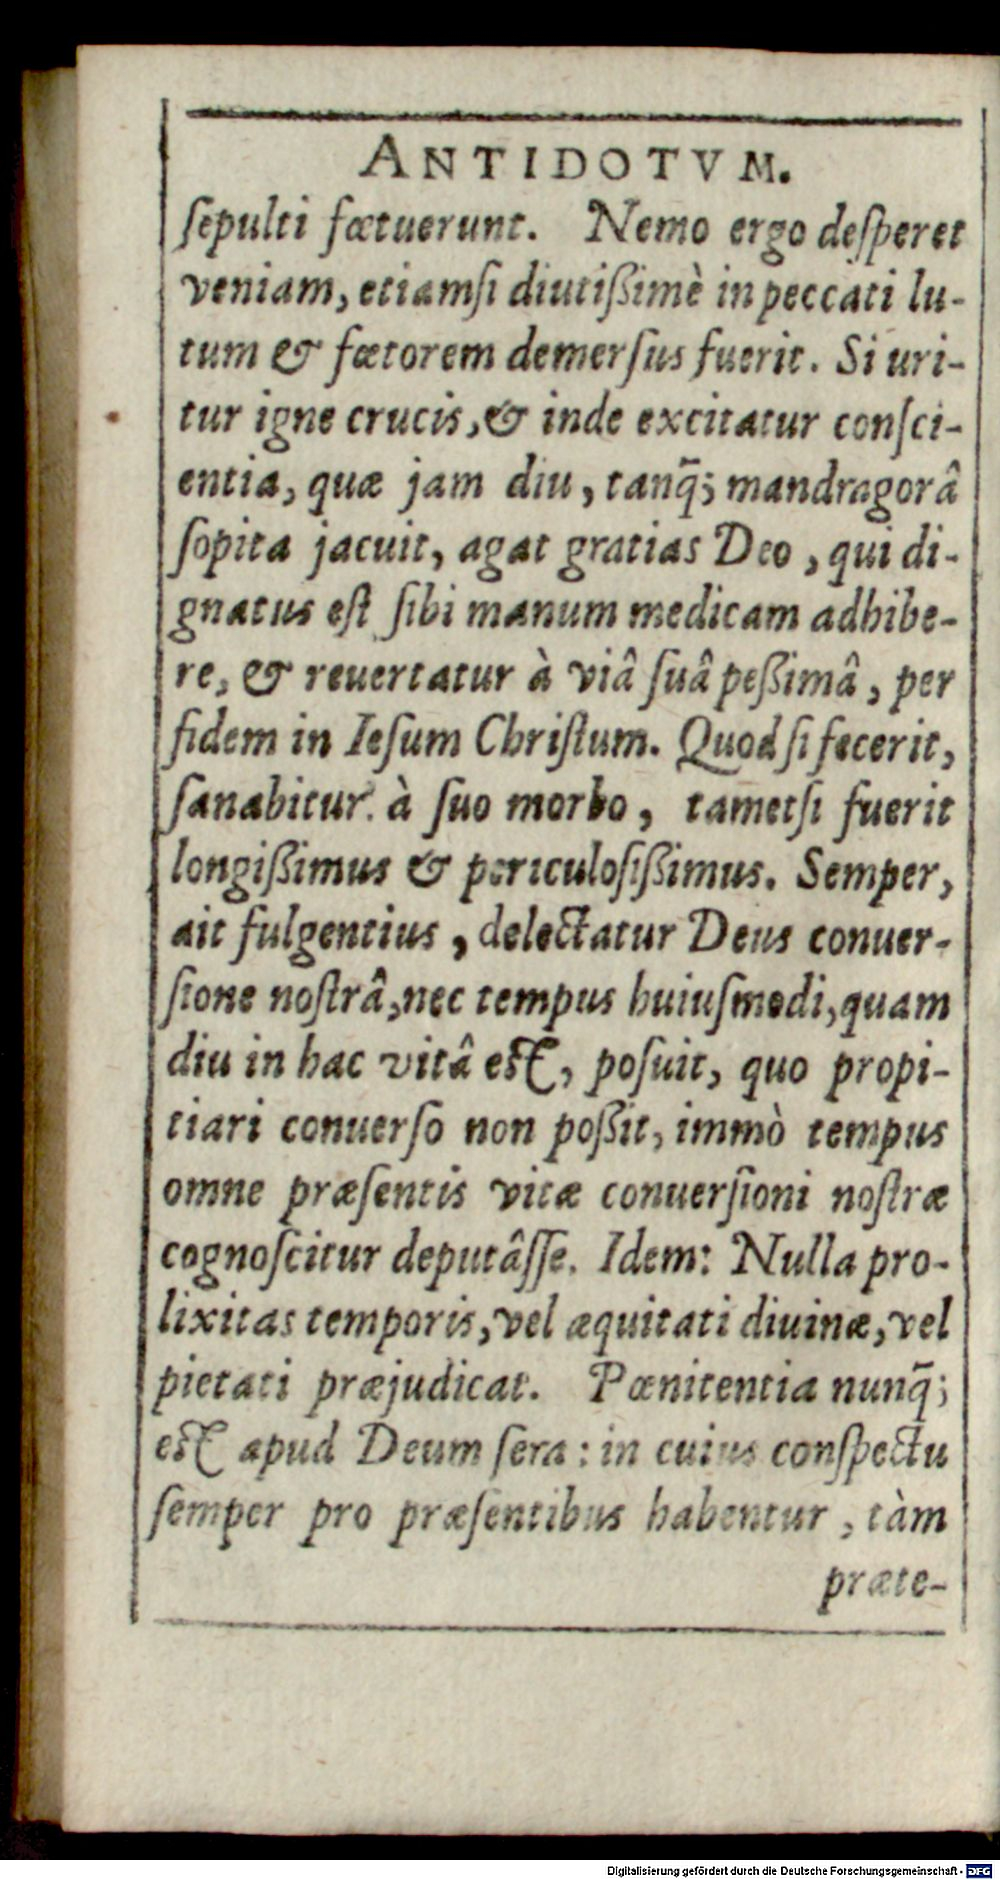 ANTIDOTVM.
ſepulti fœtuerunt. Nemo ergo deſperet
veniam, etiamſi diutiſſimè in peccati lu-
tum & fœtorem demerſus fuerit. Si uri-
tur igne crucis, & inde excitatur conſci-
entia, quæ jam diu, tanq̃; mandragorâ
ſopita jacuit, agat gratias Deo, qui di-
gnatus eſt ſibi manum medicam adhibe-
re, & reuertatur à viâ ſuâ peſſimâ, per
fidem in Ieſum Chriſtum. Quod ſi fecerit,
ſanabitur. à ſuo morbo, tametſi fuerit
longiſſimus & periculoſiſſimus. Semper,
ait fulgentius, delectatur Deus conuer-
ſione noſtrâ, nec tempus huiuſmodi, quam
diu in hac vitâ eſt, poſuit, quo propi-
tiari conuerſo non poſſit, immò tempus
omne præſentis vitæ conuerſioni noſtræ
cognoſcitur deputâſſe. Idem: Nulla pro-
lixitas temporis, vel æquitati diuinæ, vel
pietati præjudicat. Pœnitentia nunq̃;
eſt apud Deum ſera: in cuius conſpectu
ſemper pro præſentibus habentur, tàm
præte-
Digitalisierung gefördert durch die Deutsche Forschungsgemeinschaft - DFG